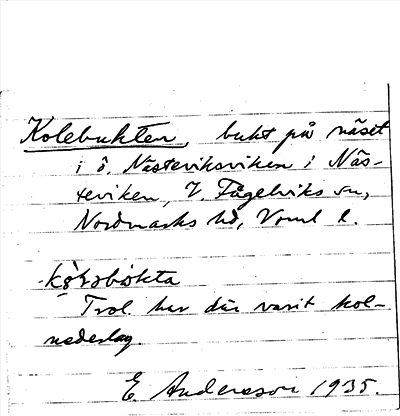 Kolebukten, bukt på näset
i ö. Nästeviksviken i Näs-
teviken, V. Fågelviks sn,
Nordmarks hd, Vrml l.
Trol. har där varit kol-
nederlag.
E Andersson 1935.